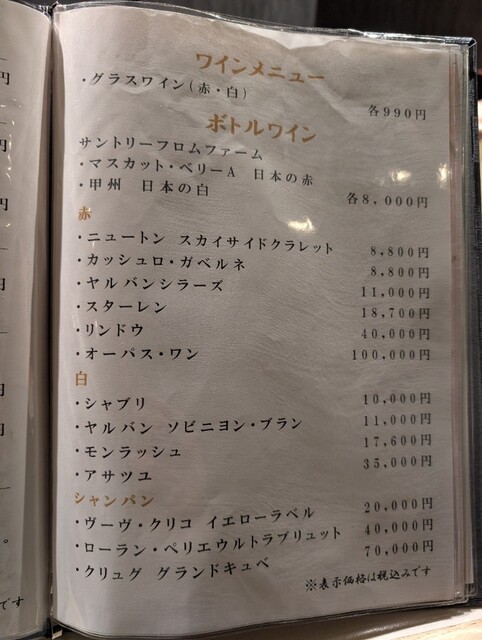 円
円
円
円
円
円
。
です
ワインメニュー
・グラスワイン(赤・白)
各990円
ボトルワイン
サントリーフロムファーム
・マスカット・ベリーA 日本の赤
・甲州 日本の白
各8,000円
赤
・ニュートン スカイサイドクラレット 8,800円
・カッシュロ・ガベルネ 8,800円
・ヤルバンシラーズ 11,000円
・スターレン 18,700円
・リンドウ 40,000円
・オーパス・ワン 100,000円
白
・シャブリ 10,000円
・ヤルバン ソビニヨン・ブラン 11,000円
・モンラッシュ 17,600円
・アサツユ 35,000円
シャンパン
・ヴーヴ・クリコ イエローラベル 20,000円
・ローラン・ペリエウルトラブリュット 40,000円
・クリュグ グランドキュベ 70,000円
※表示価格は税込みです